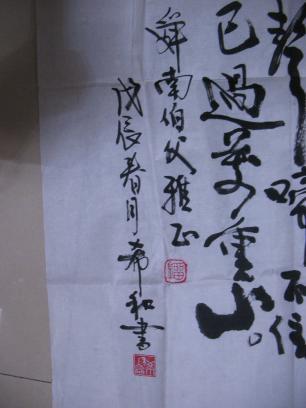 聲啼不住
已過萬重山。
舜南伯父雅正
戊辰春月希和書